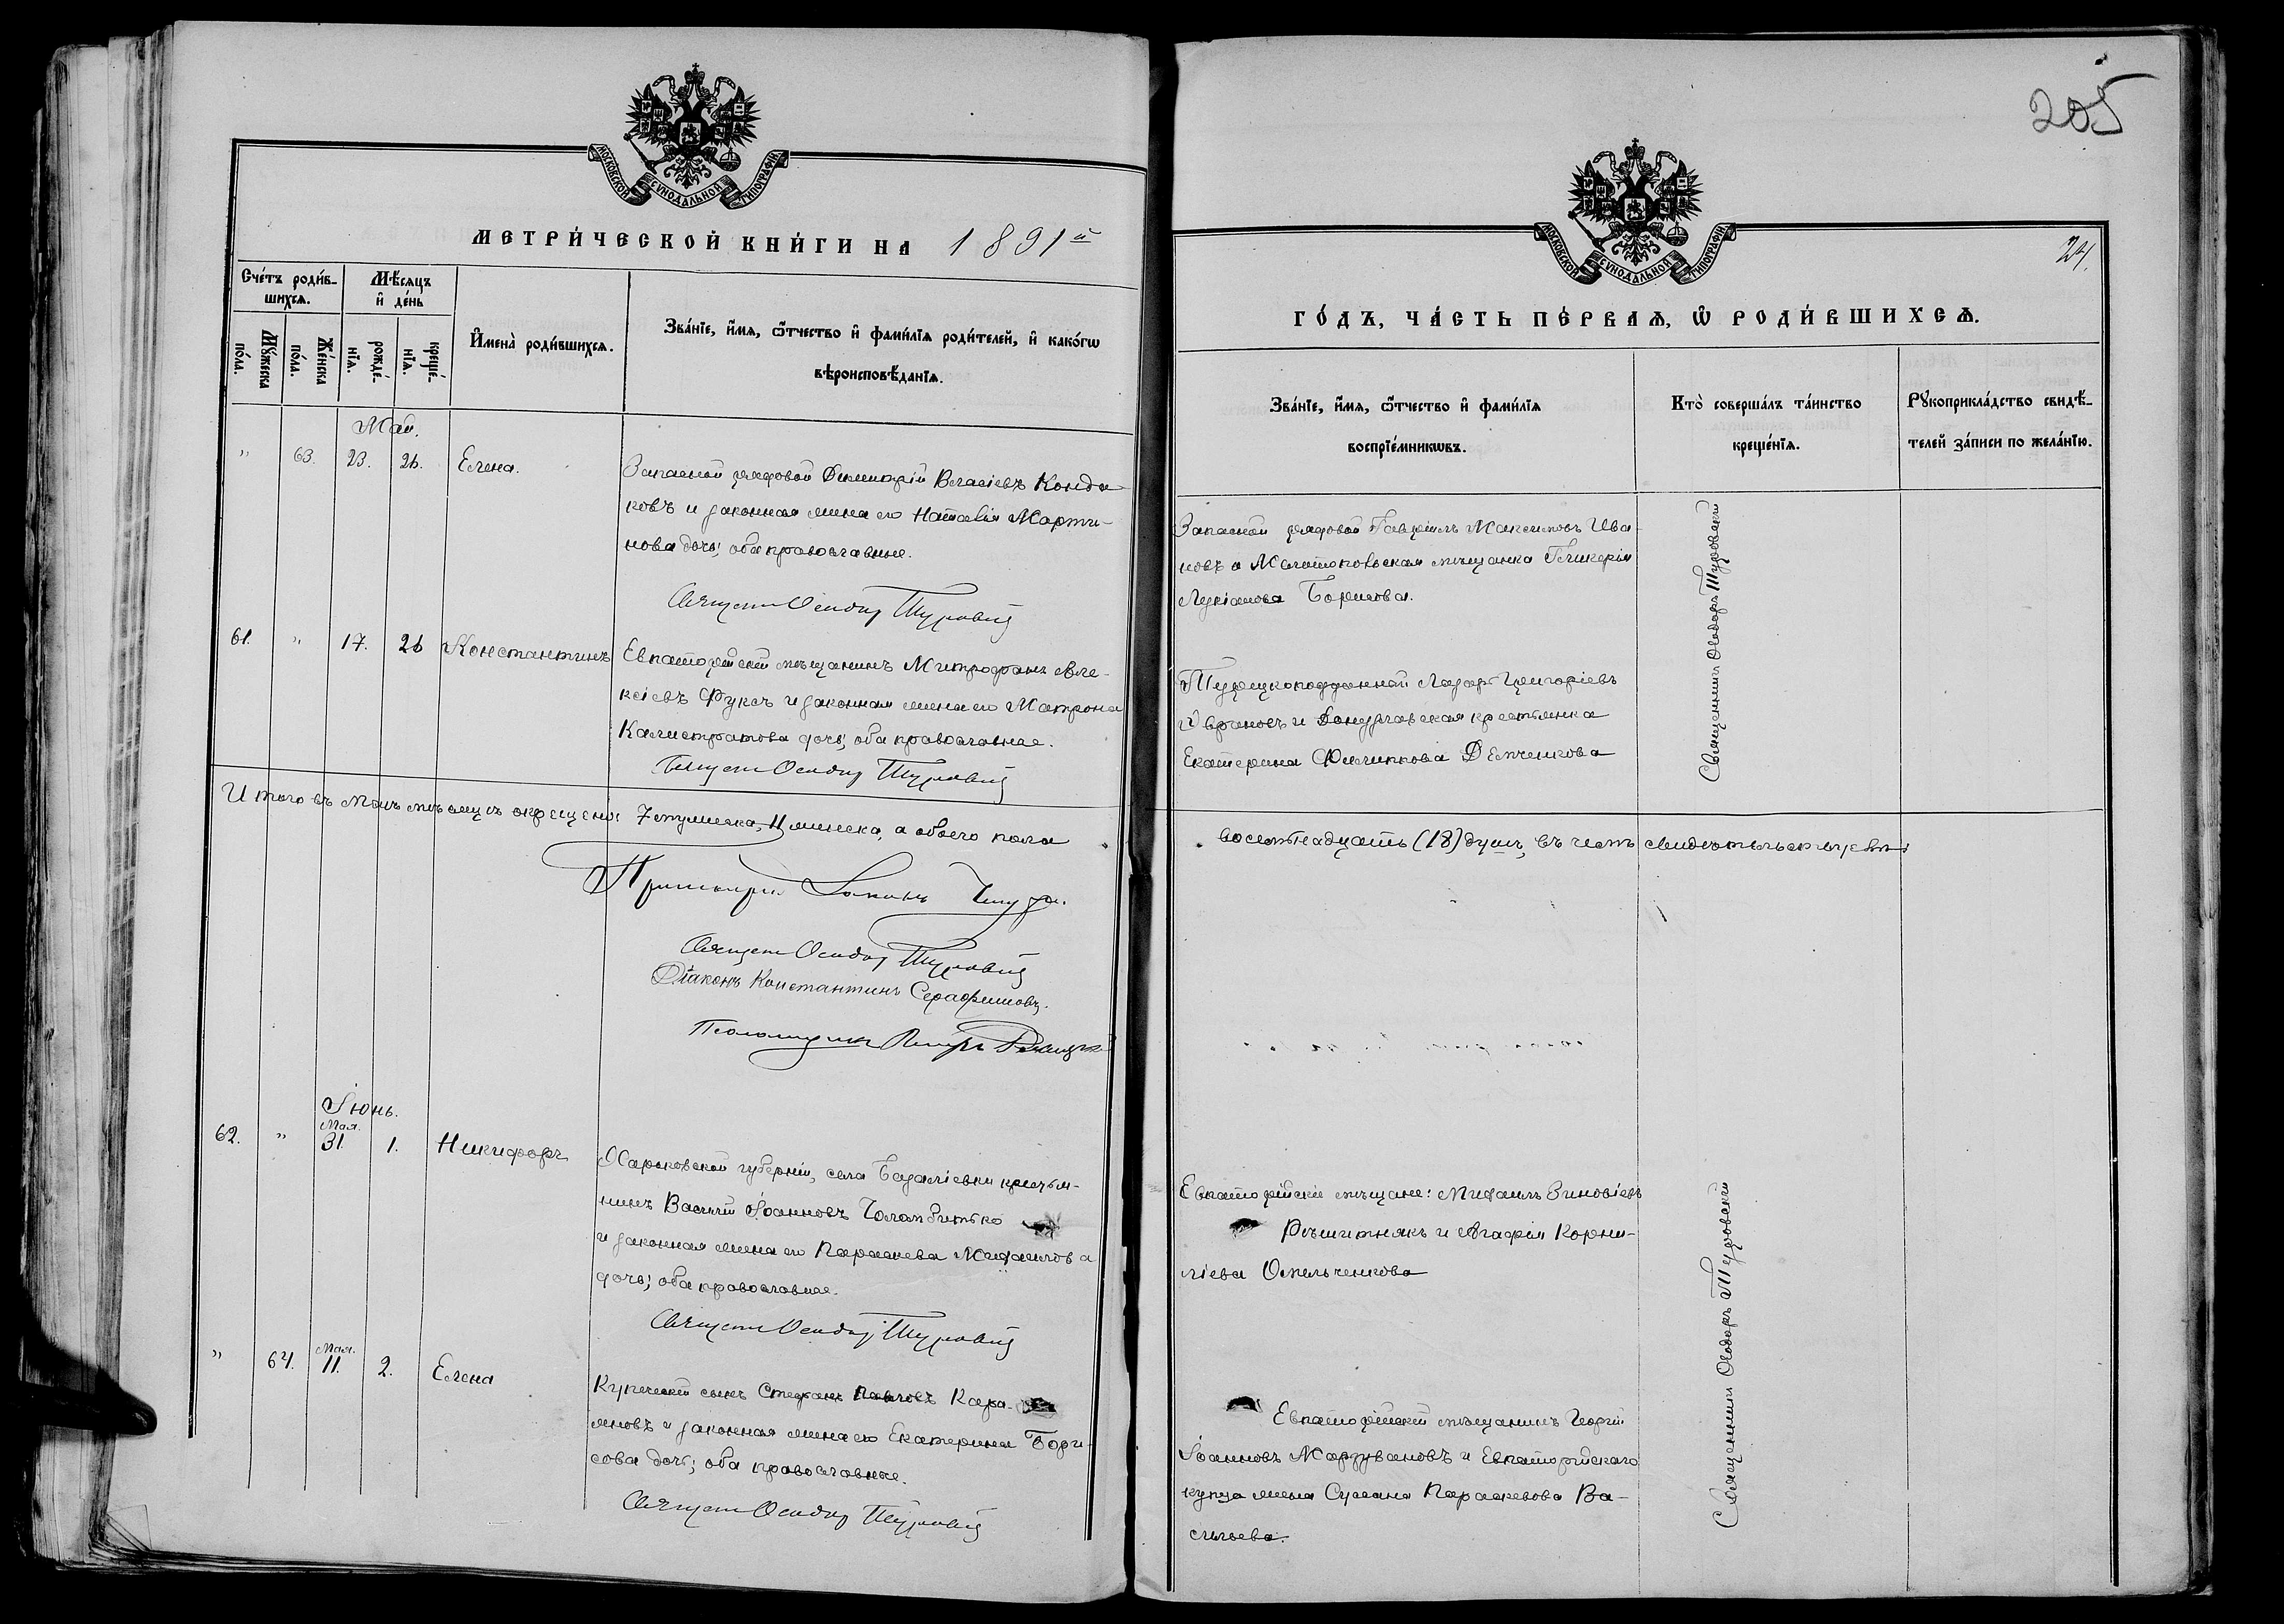 205
МОСКОВСКОЙ СѴНОДАЛЬНОЙ ТИПОГРАФІИ
МЕТРИ́ЧЕСКОЙ КНИ́ГИ НА 1891й
Сче́тъ роди́в-
шихсѧ.
Мѣ́сѧцъ
и҆ де́нь
Мꙋ́жеска
по́ла.
Же́нска
по́ла.
рожде́-
нїѧ.
креще́-
нїѧ.
И҆мена̀ роди́вшихсѧ.
Зва́нїе, и҆́мѧ, ѻ҆́тчество и҆ фами́лїѧ роди́телей, и҆ како́гѡ
вѣроисповѣ́данїѧ.
Май.
" 63. 23. 26. Елена.
Запасной рядовой Димитрій Власіевъ Конда-
ковъ и законная жена его Наталія Марти-
нова дочь; оба православные.
Священ Ѳеодор Туровскій
61. " 17. 26 Константинъ
Евпаторійскій мѣщанинъ Митрофанъ Але-
ксіевъ Фуксъ и законная жена его Матрона
Калистратова дочь; оба православные.
Священ Ѳеодор Туровскій
Итого въ Маѣ мѣсяцѣ окрещено: 7 мужеска, 11 женска, а обоего пола
Священ Ѳеодор Туровскій
Діаконъ Константинъ Серафимовъ.
Псаломщикъ Петръ
Іюнь.
Мая.
62. " 31. 1. Никифоръ
Харьковской губерніи, села крестья-
нинъ Василій Іоанновъ
и законная жена его Параскева Михаилова
дочь; оба православные.
Священ Ѳеодор Туровскій
Мая.
" 64. 11. 2. Елена
Купеческій сынъ Стефанъ Павловъ Кара-
мновъ и законная жена его Екатерина Бори-
сова дочь; оба православные.
Священ Ѳеодор Туровскій
МОСКОВСКОЙ СѴНОДАЛЬНОЙ ТИПОГРАФІИ
24.
ГО́ДЪ, ЧА́СТЬ ПЕ́РВАѦ, Ѡ҆ РОДИ́ВШИХСѦ.
Зва́нїе, и҆́мѧ, ѻ҆́тчество и҆ фами́лїѧ
воспрїе́мникѡвъ.
Кто̀ соверша́лъ та́инство
креще́нїѧ.
Рꙋкоприкла́дство свидѣ́-
телей за́писи по жела́нїю.
Запасной рядовой Гавріилъ Максимовъ Ива-
новъ и Мелитопольская мѣщанка Гликерія
Лукіанова Борисова.
Священникъ Ѳеодоръ Туровскій
Турецкоподданный Лазарь Григоріевъ
и Донузлавская крестьянка
Екатерина Филиппова Демченкова
восемнадцать (18) душъ, въ чемъ свидѣтельствуемъ:
Евпаторійскіе мѣщане: Михаилъ Зиновіевъ
Рѣшитнякъ и Агафія Корни-
ліева Омельченкова
Священникъ Ѳеодоръ Туровскій
Евпаторійскій мѣщанинъ Георгій
Іоанновъ Мардувановъ и Евпаторійскаго
купца жена Сусана Параскевова Ва-
сильева.